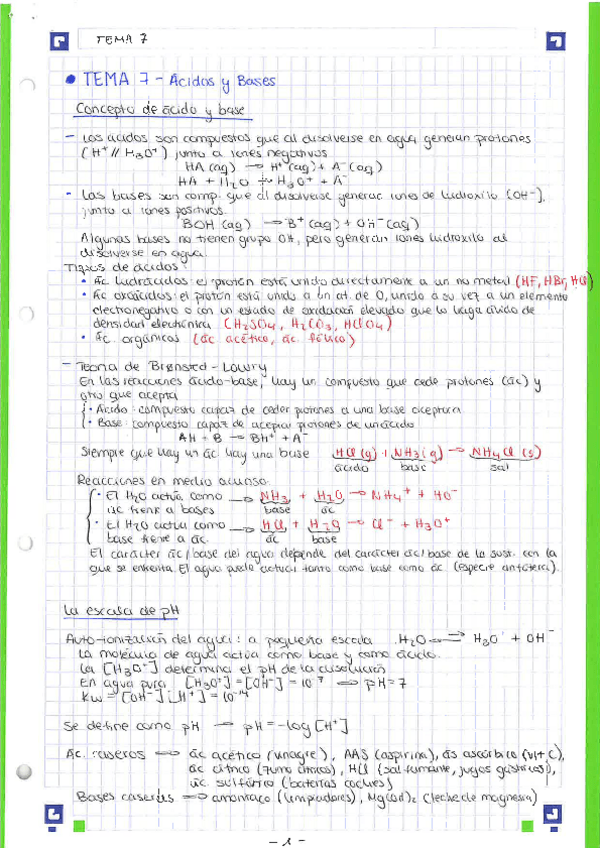 TEMA 7
• TEMA 7 - Ácidos y Bases
Concepto de ácido y base
- Los ácidos son compuestos que al disolverse en agua generan protones
(H⁺ // H₃O⁺) junto a iones negativos
HA (aq) → H⁺(aq) + A⁻(aq)
HA + H₂O → H₃O⁺ + A⁻
- Las bases son comp. que al disolverse generan iones de hidroxilo (OH⁻),
junto a iones positivos.
BOH (aq) → B⁺(aq) + OH⁻(aq)
Algunas bases no tienen grupo OH, pero generan iones hidroxilo al
disolverse en agua.
Tipos de ácidos:
• Ác hidrácidos: el protón está unido directamente a un no metal (HF, HBr, HCl)
• Ác oxácidos: el protón está unido a un at. de O, unido a su vez a un elemento
electronegativo o con un estado de oxidación elevado que lo haga ávido de
densidad electrónica (H₂SO₄, H₂CO₃, HClO₄)
• Ác. orgánicos (ác acético, ác. fólico)
- Teoría de Brønsted - Lowry
En las reacciones ácido-base, hay un compuesto que cede protones (ác) y
otro que acepta
• Ácido: compuesto capaz de ceder protones a una base aceptora
• Base: compuesto capaz de aceptar protones de un ácido
AH + B → BH⁺ + A⁻
Siempre que hay un ác hay una base HCl (g) + NH₃ (g) → NH₄Cl (s)
ácido base sal
Reacciones en medio acuoso
• El H₂O actúa como → NH₃ + H₂O → NH₄⁺ + HO⁻
ác frente a bases base ác
• El H₂O actúa como → HCl + H₂O → Cl⁻ + H₃O⁺
base frente a ác. ác base
El carácter ác/base del agua depende del carácter ác/base de la sust. con la
que se enfrenta. El agua puede actuar tanto como base como ác (especie anfótera).
La escala de pH
Auto-ionización del agua: a pequeña escala H₂O ⇌ H₃O⁺ + OH⁻
La molécula de agua actúa como base y como ácido.
La [H₃O⁺] determina el pH de la disolución
En agua pura [H₃O⁺] = [OH⁻] = 10⁻⁷ → pH = 7
Kw = [OH⁻] · [H⁺] = 10⁻¹⁴
Se define como pH → pH = -log [H⁺]
Ác. caseros → ác acético (vinagre), AAS (aspirina), ác ascórbico (vit C),
ác cítrico (zumo cítricos), HCl (sal fumante, jugos gástricos),
ác. sulfúrico (baterías coches)
Bases caseras → amoniaco (limpiadores), Mg(OH)₂ (leche de magnesia)
- 1 -